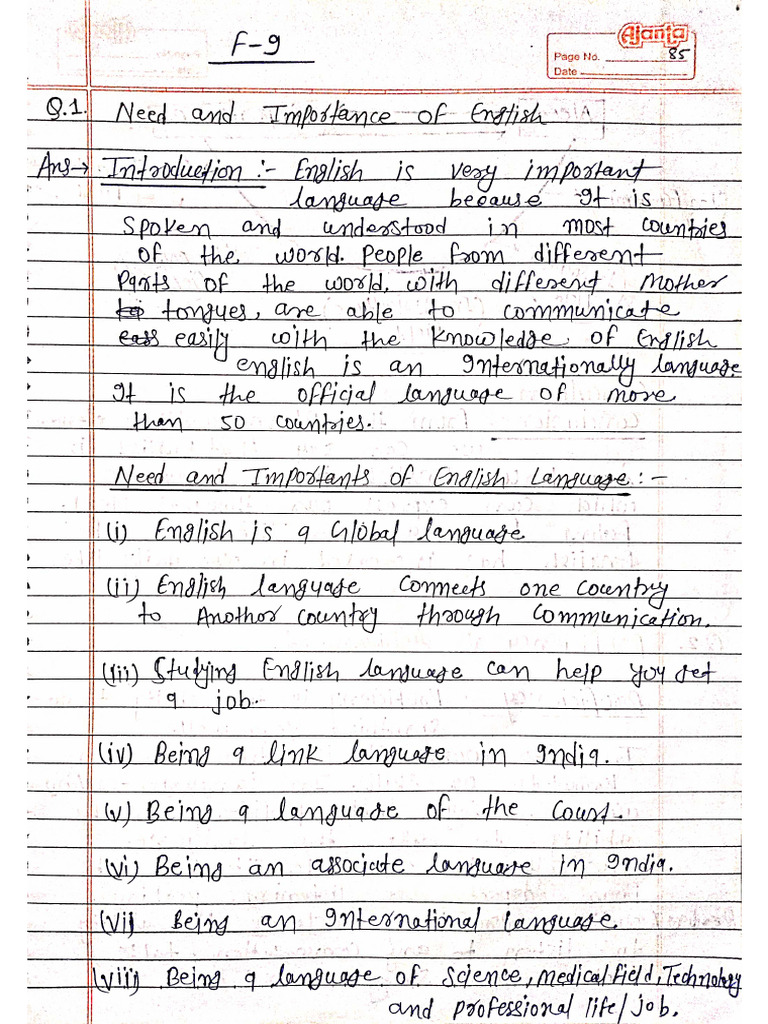 F-9
Ajanta
Page No. 85
Date
Q.1. Need and Importance of English
Ans→ Introduction :- English is very important
language because It is
Spoken and understood in most countries
of the world. People from different
Parts of the world, with different Mother
tongues, are able to communicate
easily with the knowledge of English
english is an Internationally language.
It is the official language of more
than 50 countries.
Need and Importants of English Language :-
(i) English is a Global language
(ii) English language Connects one Country
to Anothor country through Communication.
(iii) Studying English language can help you get
a job.
(iv) Being a link language in India.
(v) Being a language of the Court.
(vi) Being an associate language in India.
(vii) Being an International language.
(viii) Being a language of Science, Medical field, Technology
and professional life/job.